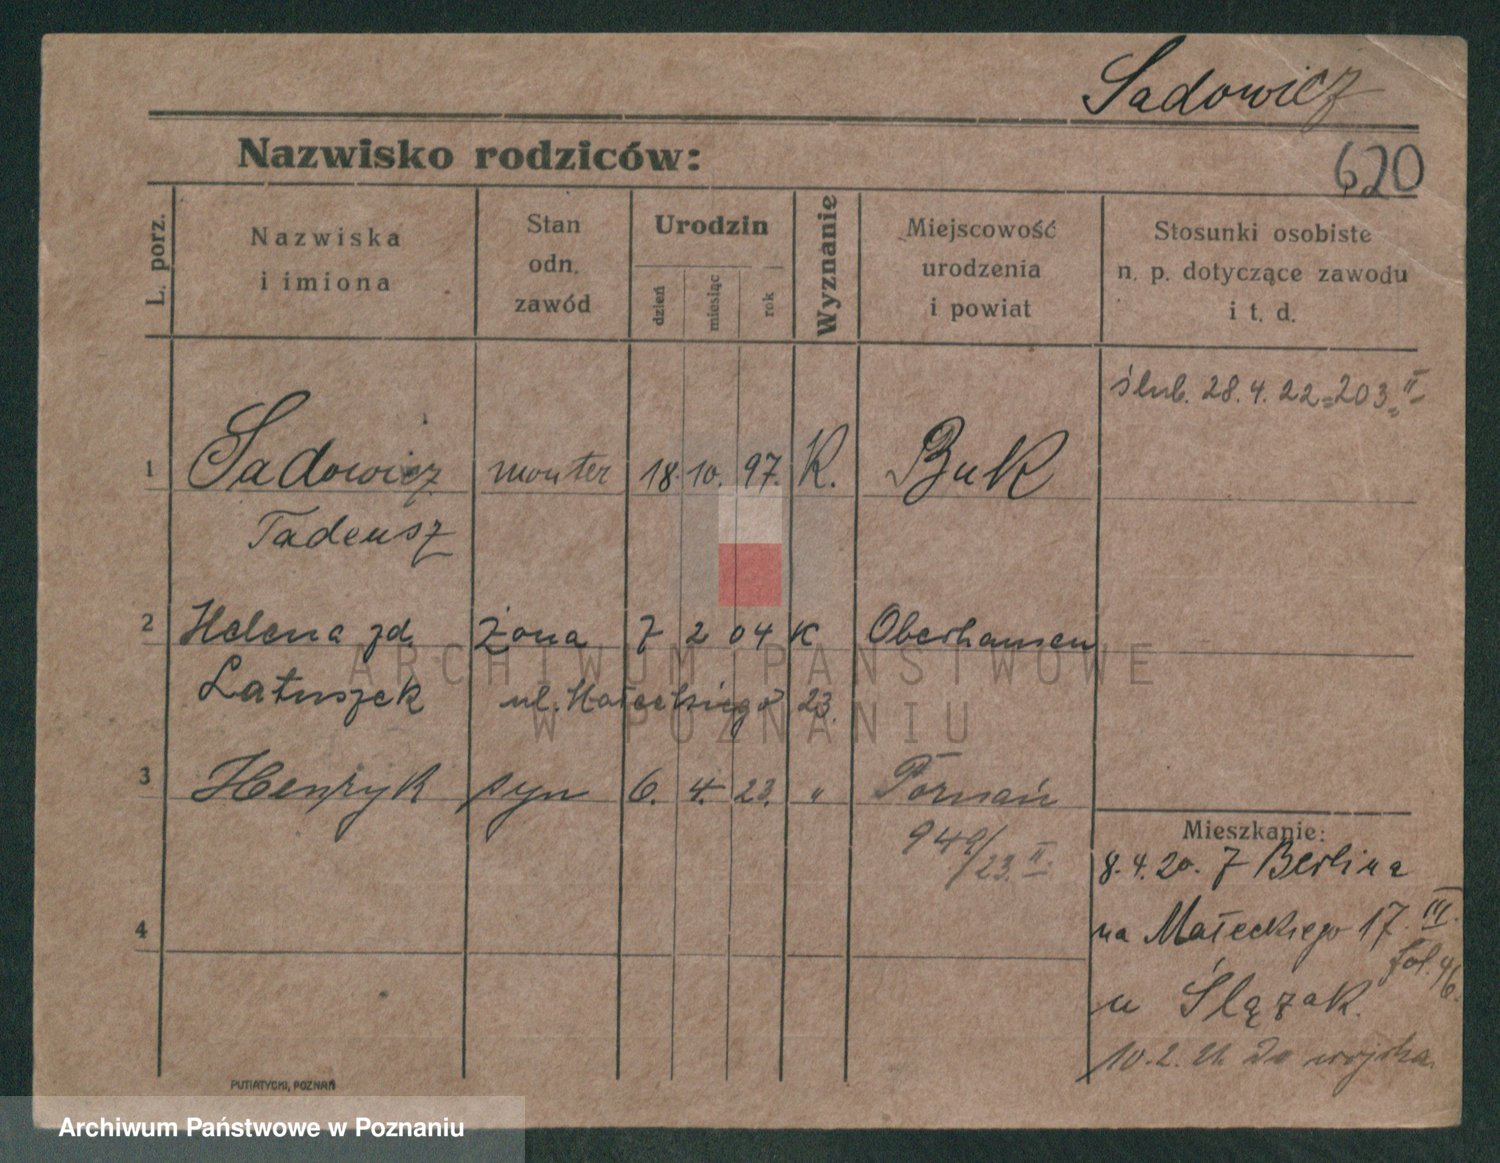 Sadowicz
Nazwisko rodziców:
620
L. porz.
Nazwiska
i imiona
Stan
odn.
zawód
Urodzin
dzień
miesiąc
rok
Wyznanie
Miejscowość
urodzenia
i powiat
Stosunki osobiste
n. p. dotyczące zawodu
i t. d.
ślub. 28.4.22 = 203 II
1 Sadowicz monter 18. 10. 97. K. Buk
Tadeusz
2 Helena zd. żona 7 2 04 K Oberhausen
Latuszek ul. Małeckiego 23.
3 Henryk syn 6. 4. 23. " Poznań
949/23. II.
Mieszkanie:
8.4.20. z Berlina
na Małeckiego 17. III.
fol. 46.
u Ślązak.
4
10.2.21. Do wojska.
PUTIATYCKI, POZNAŃ
ARCHIWUM PAŃSTWOWE
W POZNANIU
Archiwum Państwowe w Poznaniu